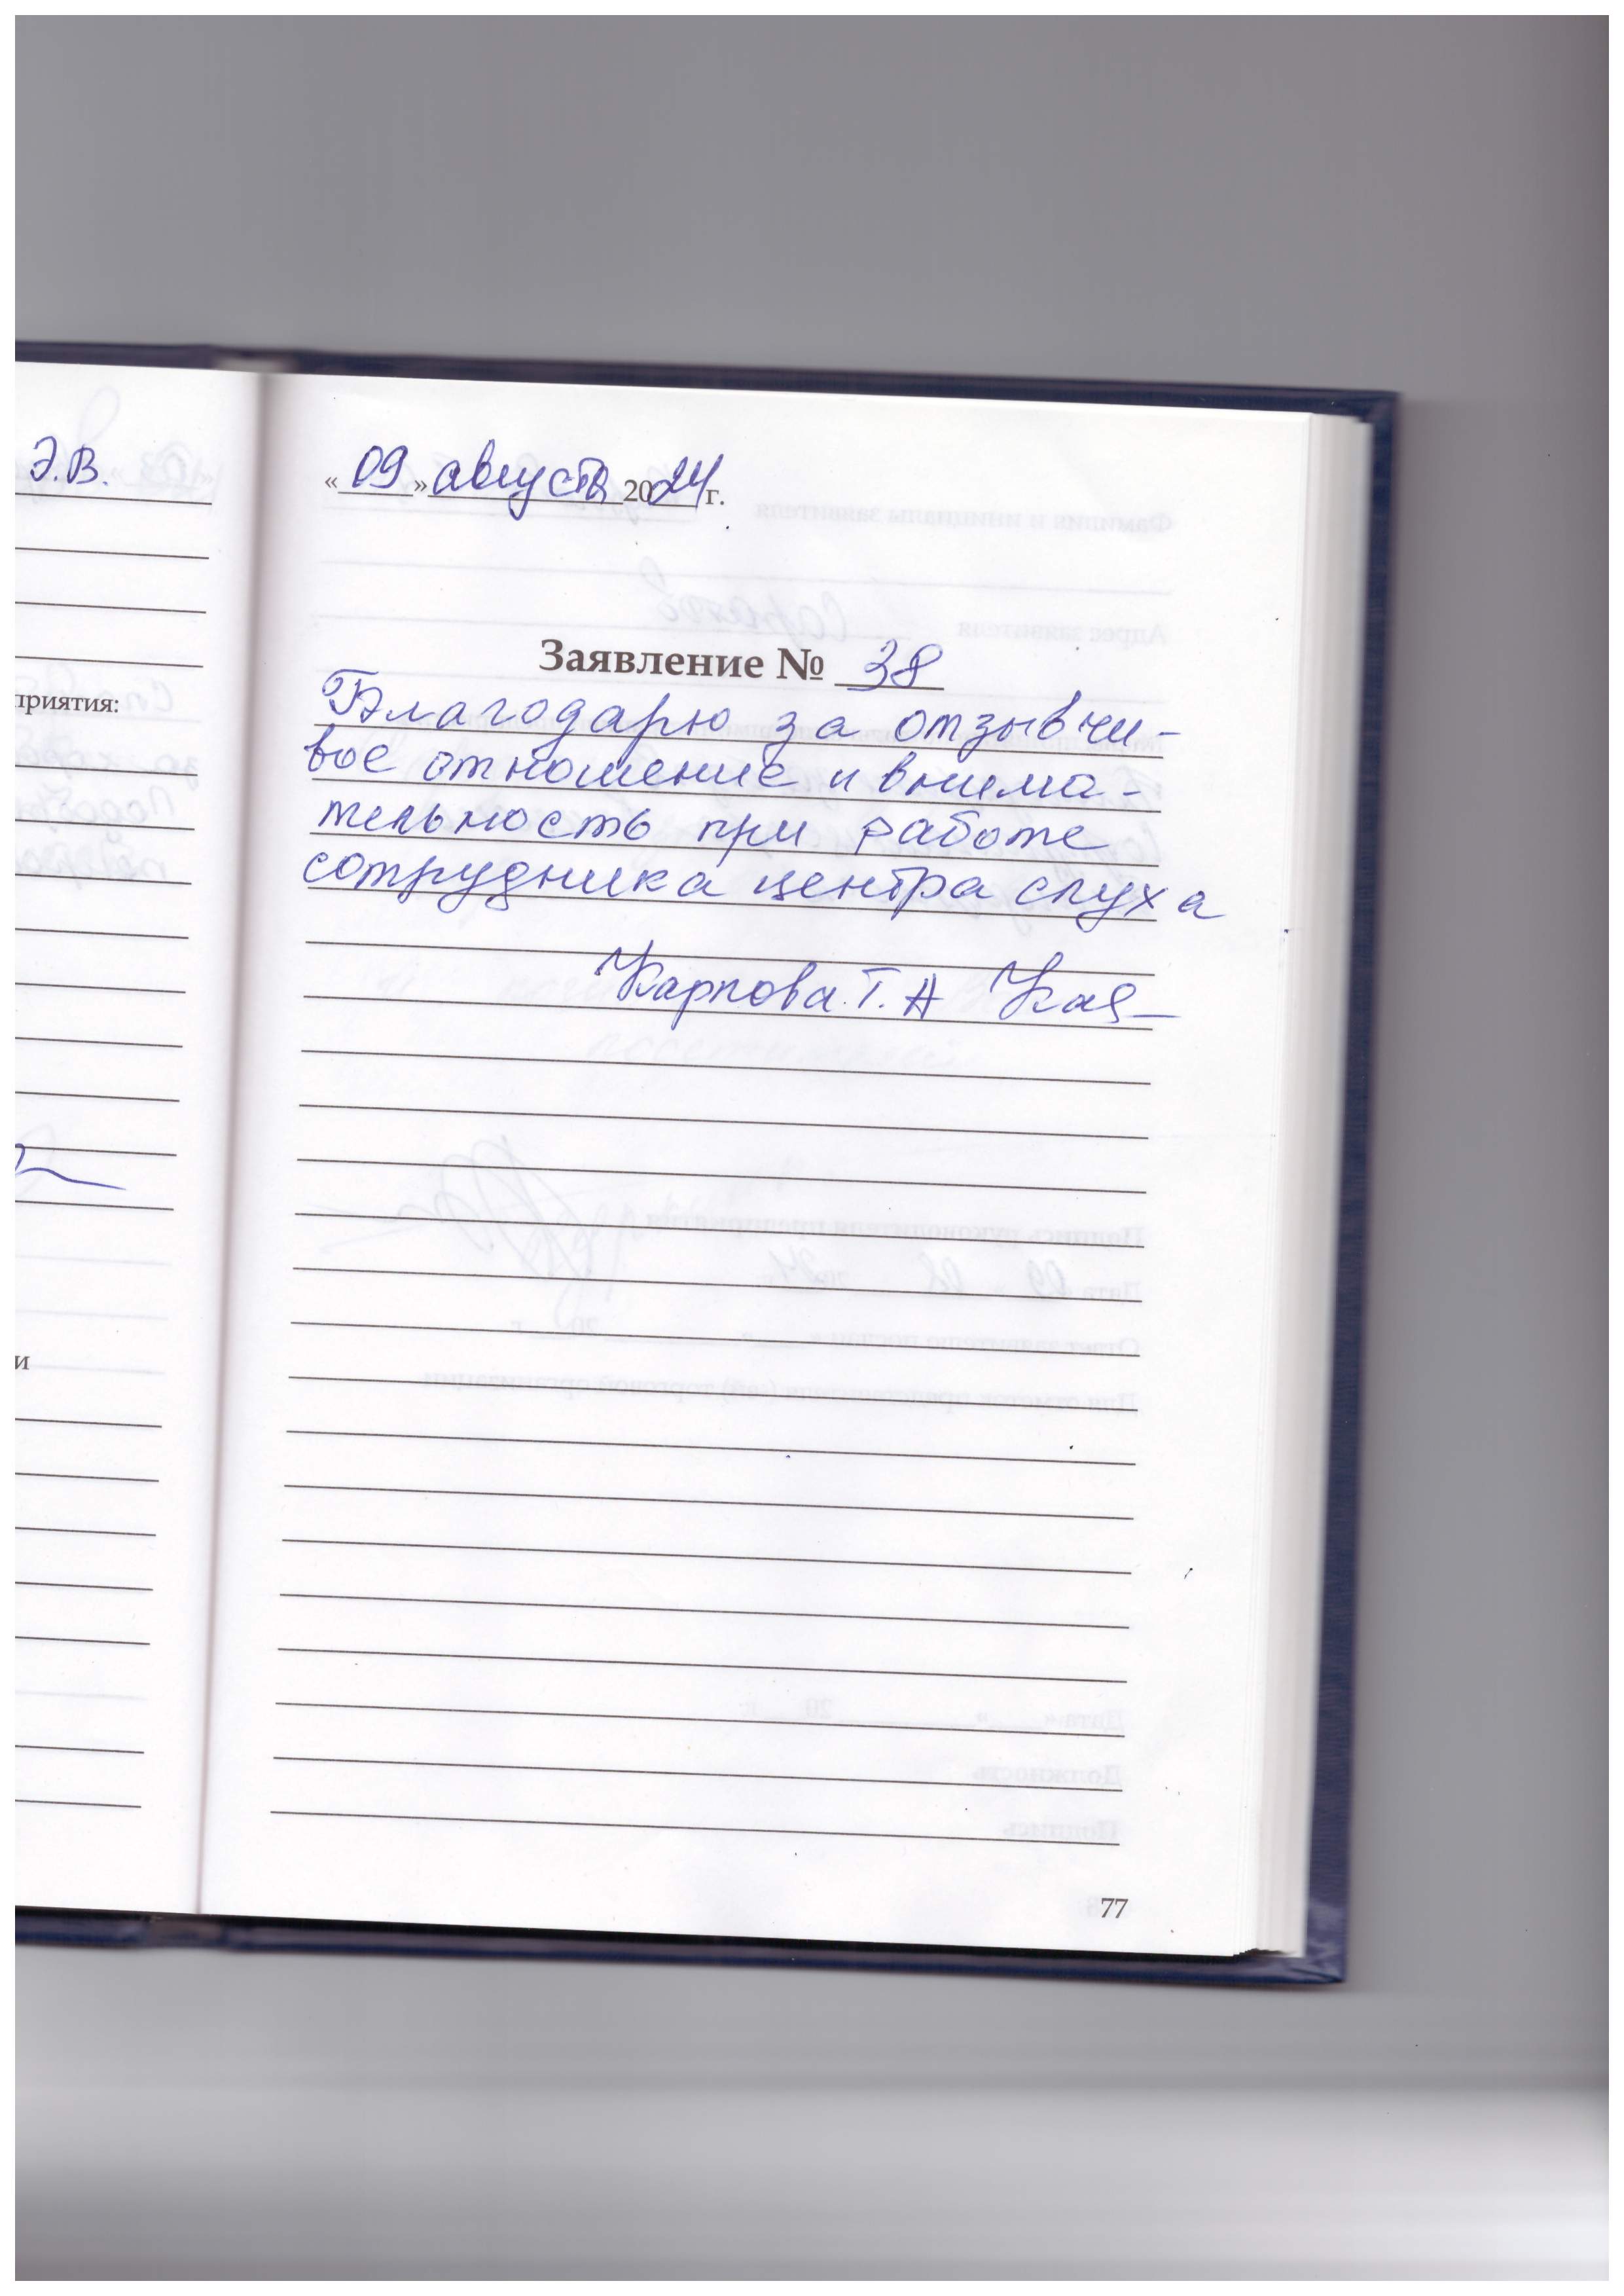 Э.В.
приятия:
и
«09» августа 2024 г.
Заявление № 38
Благодарю за отзывчи-
вое отношение и внима-
тельность при работе
сотрудника центра слуха
Карпова Т. А
77